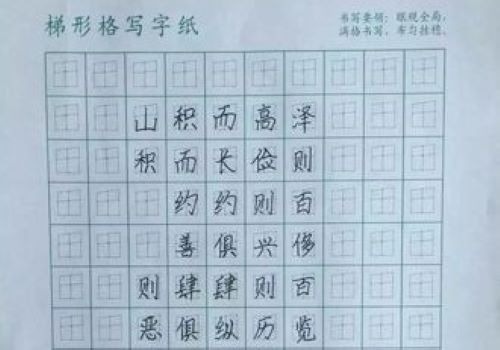 梯形格写字纸
书写要领:眼观全局,
满格书写,布匀挂稳。
山积而高泽
积而长俭则
约约则百
善俱兴侈
则肆肆则百
恶俱纵历览